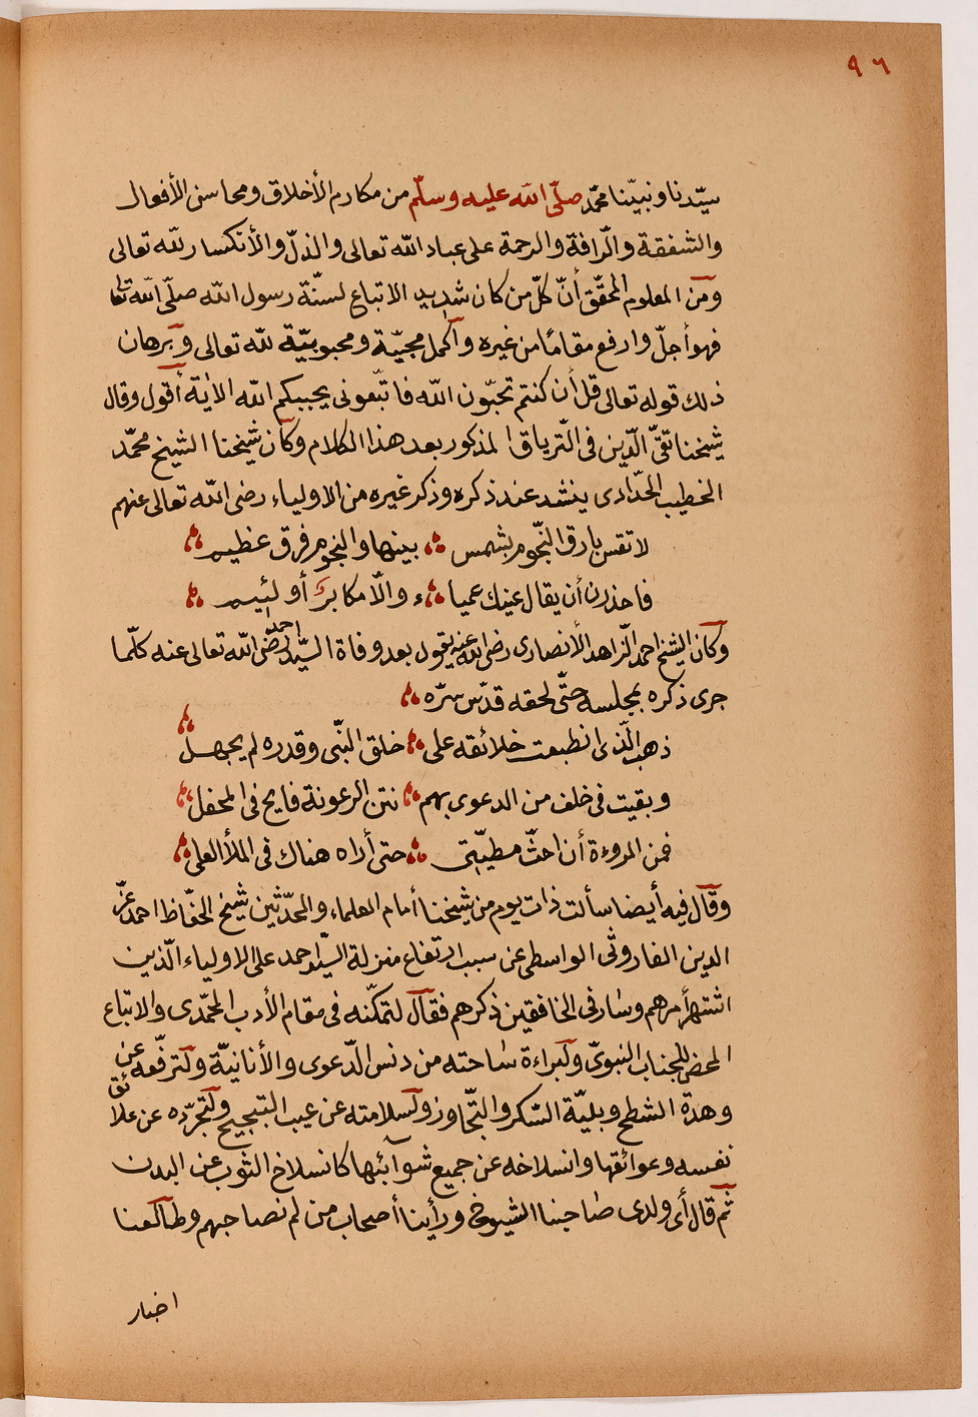 ٩٦
سيّدنا ونبيّنا محمّد صلّى الله عليه وسلّم من مكارم الأخلاق ومحاسن الأفعال
والشفقة والرّافة والرحمة على عباد الله تعالى والذلّ والأنكسار لله تعالى
ومن المعلوم المحقّق أنّ كلّ من كان شديد الاتباع لسنّة رسول الله صلّى الله تعا
فهو أجلّ وارفع مقامًا من غيره وأكمل محبيّة ومحبوبيّة لله تعالى وبرهان
ذلك قوله تعالى قل أن كنتم تحبّون الله فاتبّعونى يحببكم الله الاٰية أقول وقال
شيخنا تقىّ الدّين فى التّرياق المذكور بعد هذا الكلام وكان شيخنا الشيخ محمّد
الخطيب الحدّادى ينشد عند ذكره وذكر غيره من الاولياء رضى الله تعالى عنهم
لا تقس بارق النّجوم بشمس ؞ بينها والنجوم فرق عظيم ؞
فاحذرن أن يقال عينك عميا ؞ء والّا مكابرَ أو لئيم ؞
وكان الشيخ احمد الزّاهد الأنصارى رضى الله عنه يقول بعد وفاة السيّد احمد رضى الله تعالى عنه كلّما
جرى ذكره بمجلسه حتّى لحقه قدّس سرّه ؞
ذهب الّذى انطبعت خلائقه على ؞ خلق النبّى وقدره لم يجهل ؞
وبقيت فى خلف من الدعوى بهم ؞ نتن الرعونة فايح فى المحفل ؞
فمن المروءة أن احثّ مطيّتى ؞ حتى أراه هناك فى الملأ العلى ؞
وقال فيه أيضا سألت ذات يوم من شيخنا أمام العلماء والمحدّثين شيخ الحفّاظ احمد عزّ
الدين الفاروثى الواسطى عن سبب ارتفاع منزلة السيّد احمد على الاولياء الّذين
اشتهر أمرهم وسار فى الخافقين ذكرهم فقال لتمكّنه فى مقام الأدب المحمّدى والاتباع
المحض للجناب النبوىّ ولبراءة ساحته من دنس الدّعوى والأنانيّة ولترفّعه عن
وهدة الشطح وبليّة السّكر والتّجاوز ولسلامته عن عيب التبجيح ولتجرّده عن علائق
نفسه وعوائقها وانسلاخه عن جميع شوآئبها كانسلاخ الثوب عن البدن
ثم قال أى ولدى صاحبنا الشيوخ ورأينا أصحاب من لم نصاحبهم وطالعنا
اخبار